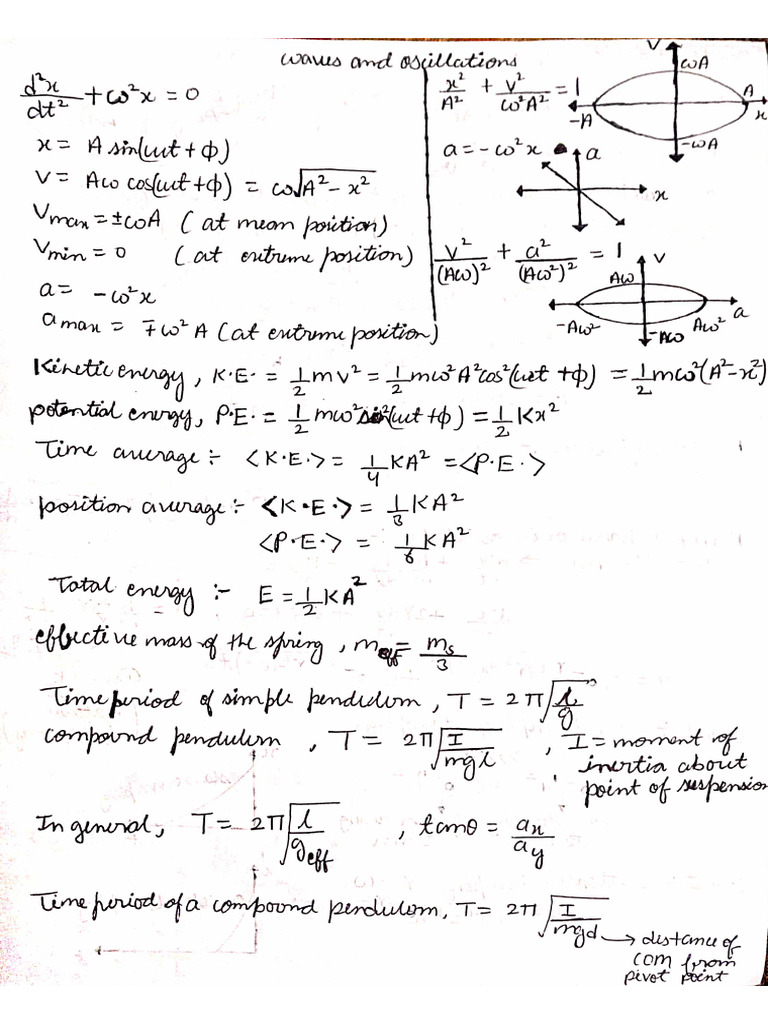 waves and oscillations
d²x/dt² + ω²x = 0
x = A sin(ωt + ϕ)
V = Aω cos(ωt + ϕ) = ω√(A² - x²)
Vmax = ±ωA (at mean position)
Vmin = 0 (at extreme position)
a = -ω²x
amax = ∓ω²A (at extreme position)
x²/A² + V²/ω²A² = 1
V
ωA
A
x
-A
-ωA
a = -ω²x
a
x
V²/(Aω)² + a²/(Aω²)² = 1
V
Aω
-Aω²
Aω²
a
-Aω
Kinetic energy, K.E. = 1/2 mv² = 1/2 mω²A²cos²(ωt + ϕ) = 1/2 mω²(A² - x²)
potential energy, P.E. = 1/2 mω²sin²(ωt + ϕ) = 1/2 Kx²
Time average :- <K.E.> = 1/4 KA² = <P.E.>
position average :- <K.E.> = 1/3 KA²
<P.E.> = 1/6 KA²
Total energy :- E = 1/2 KA²
effective mass of the spring, meff = ms/3
Time period of simple pendulum, T = 2π√(l/g)
compound pendulum, T = 2π√(I/mgl), I = moment of
inertia about
point of suspension
In general, T = 2π√(l/geff), tanθ = ax/ay
Time period of a compound pendulum, T = 2π√(I/mgd)
→ distance of
COM from
pivot point